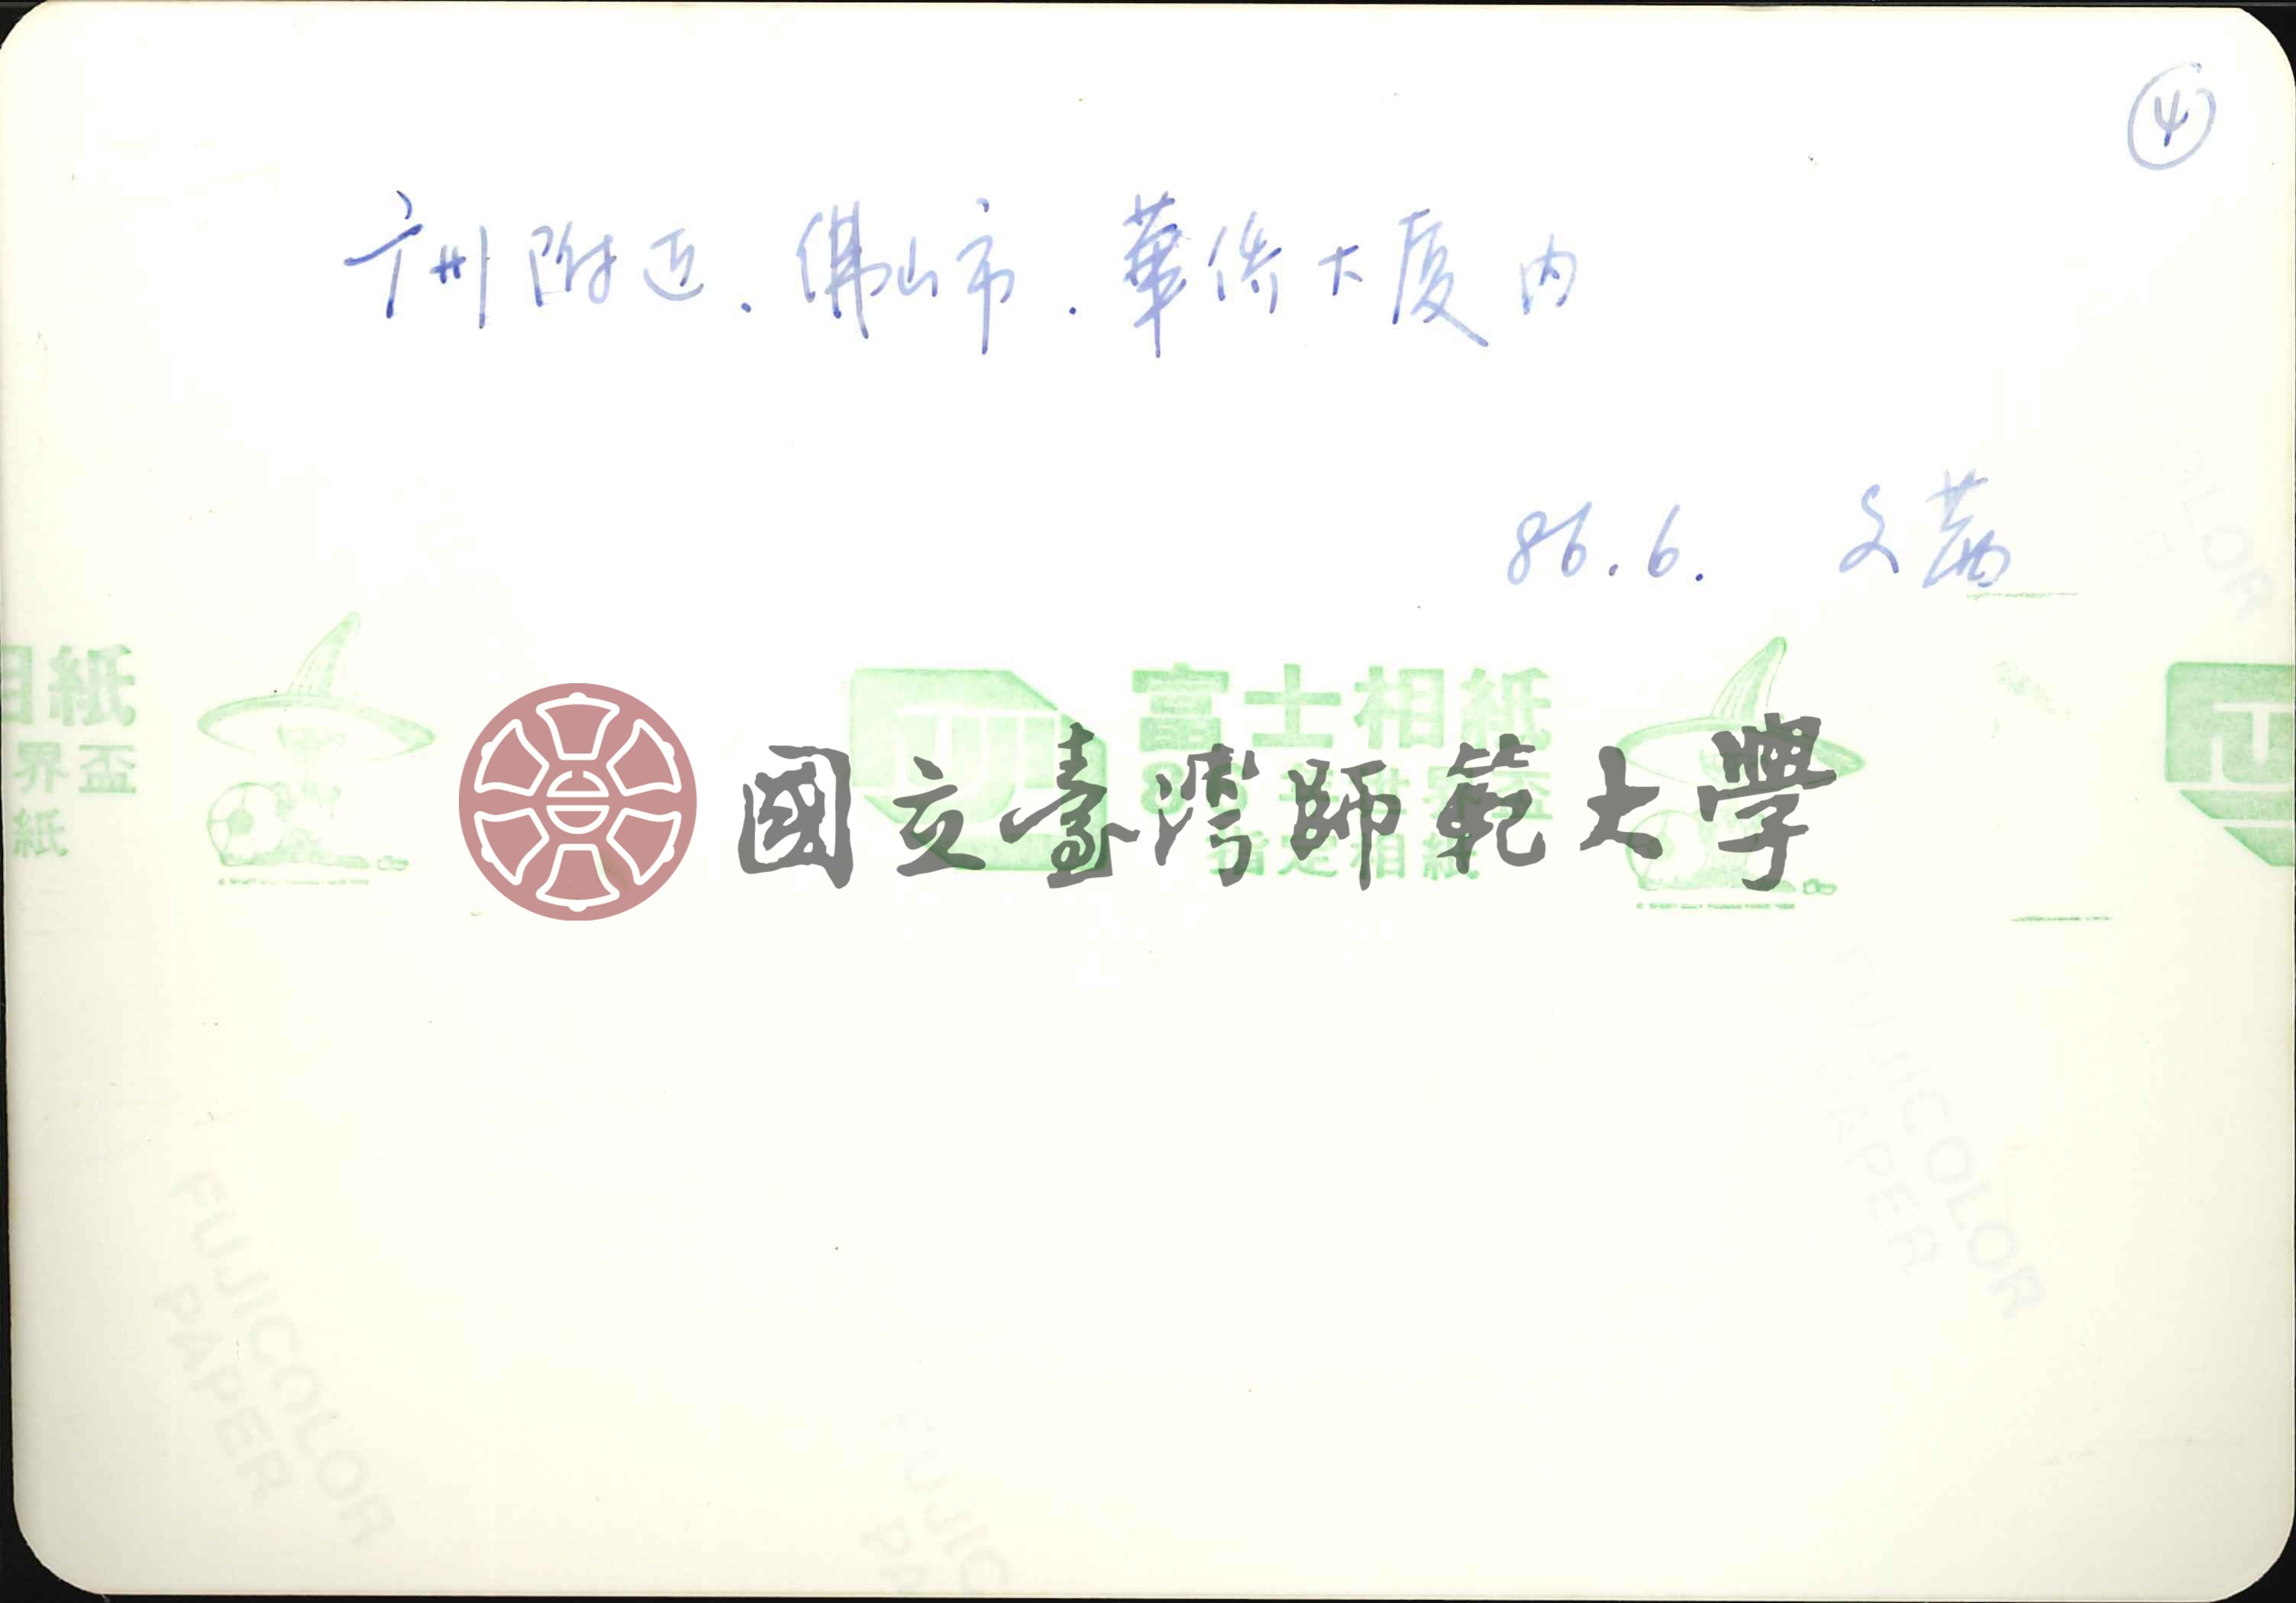 ④
广州附近.佛山市.華侨大厦内
86.6. 文茜
相紙
富士相紙
界盃
86年世界盃
紙
指定相紙
國立臺灣師範大學
FUJICOLOR
PAPER
FUJICOLOR
PAPER